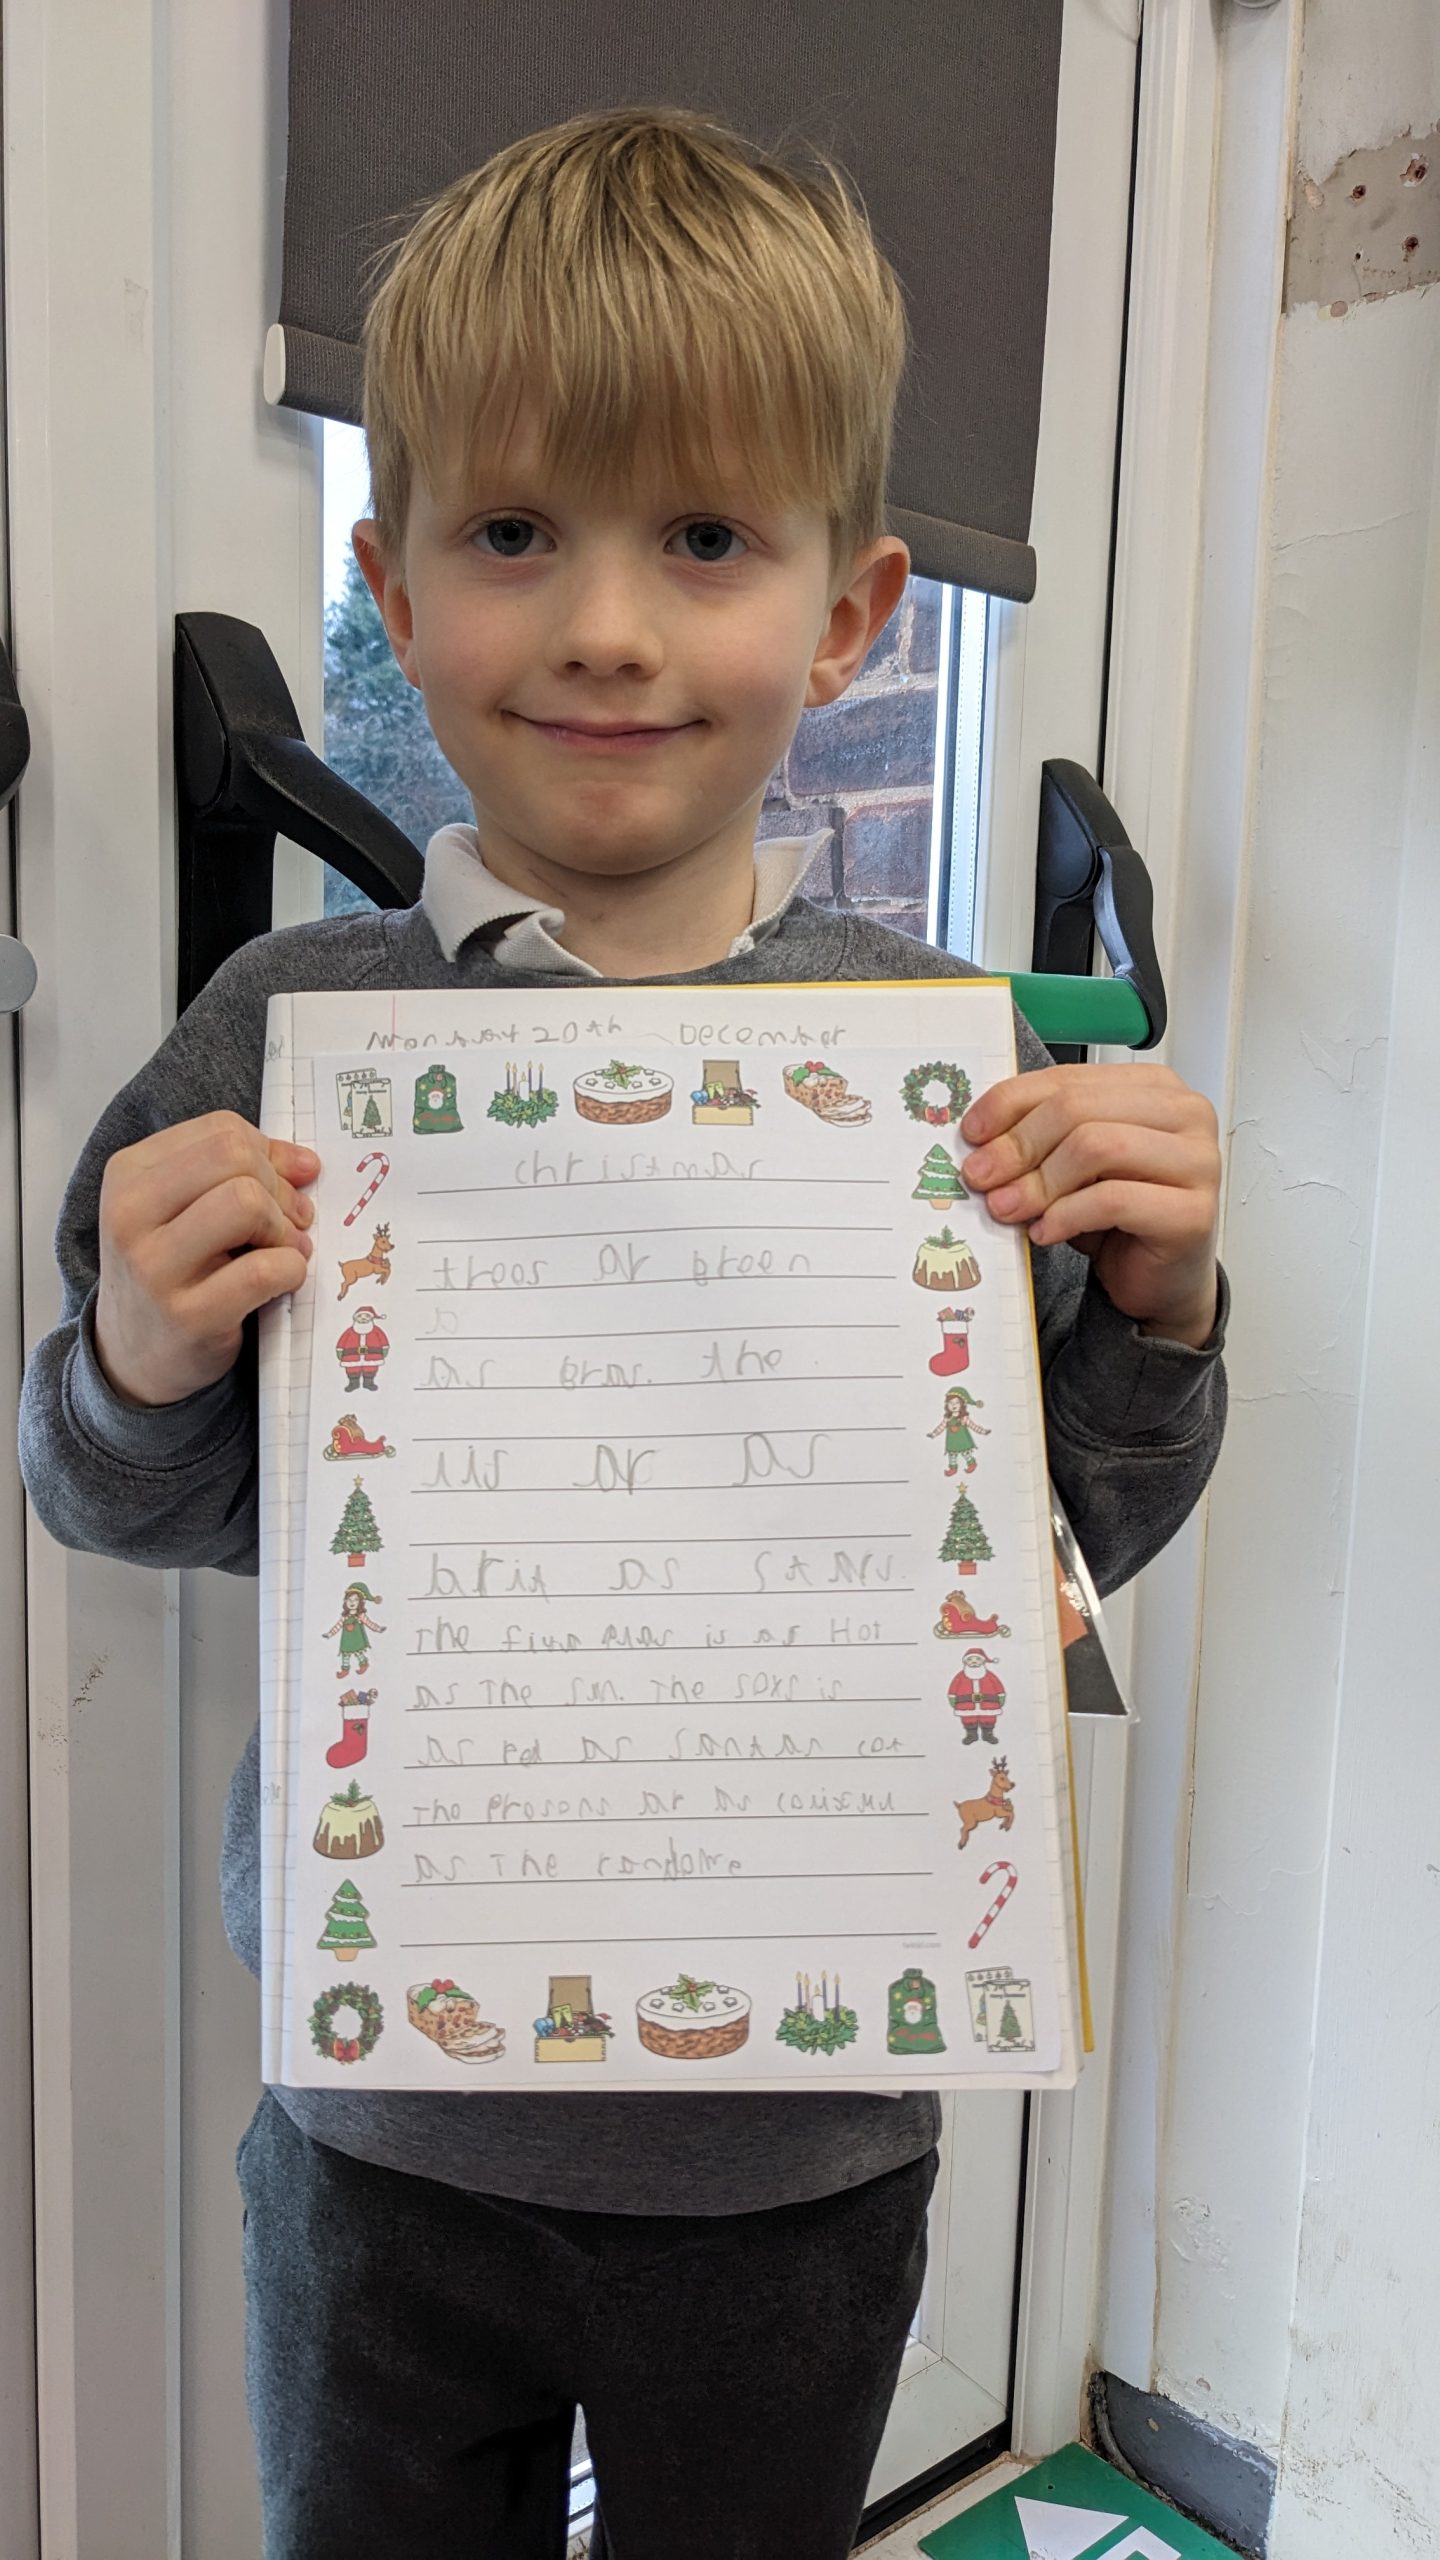 Monday 20th December
christmas
trees ar green
a
as gras. the
lits ar as
brit as stars.
The fiyu plas is as Hot
as The sun. The soxs is
as red as santas cot
The presens ar as
as The
twinkl.com